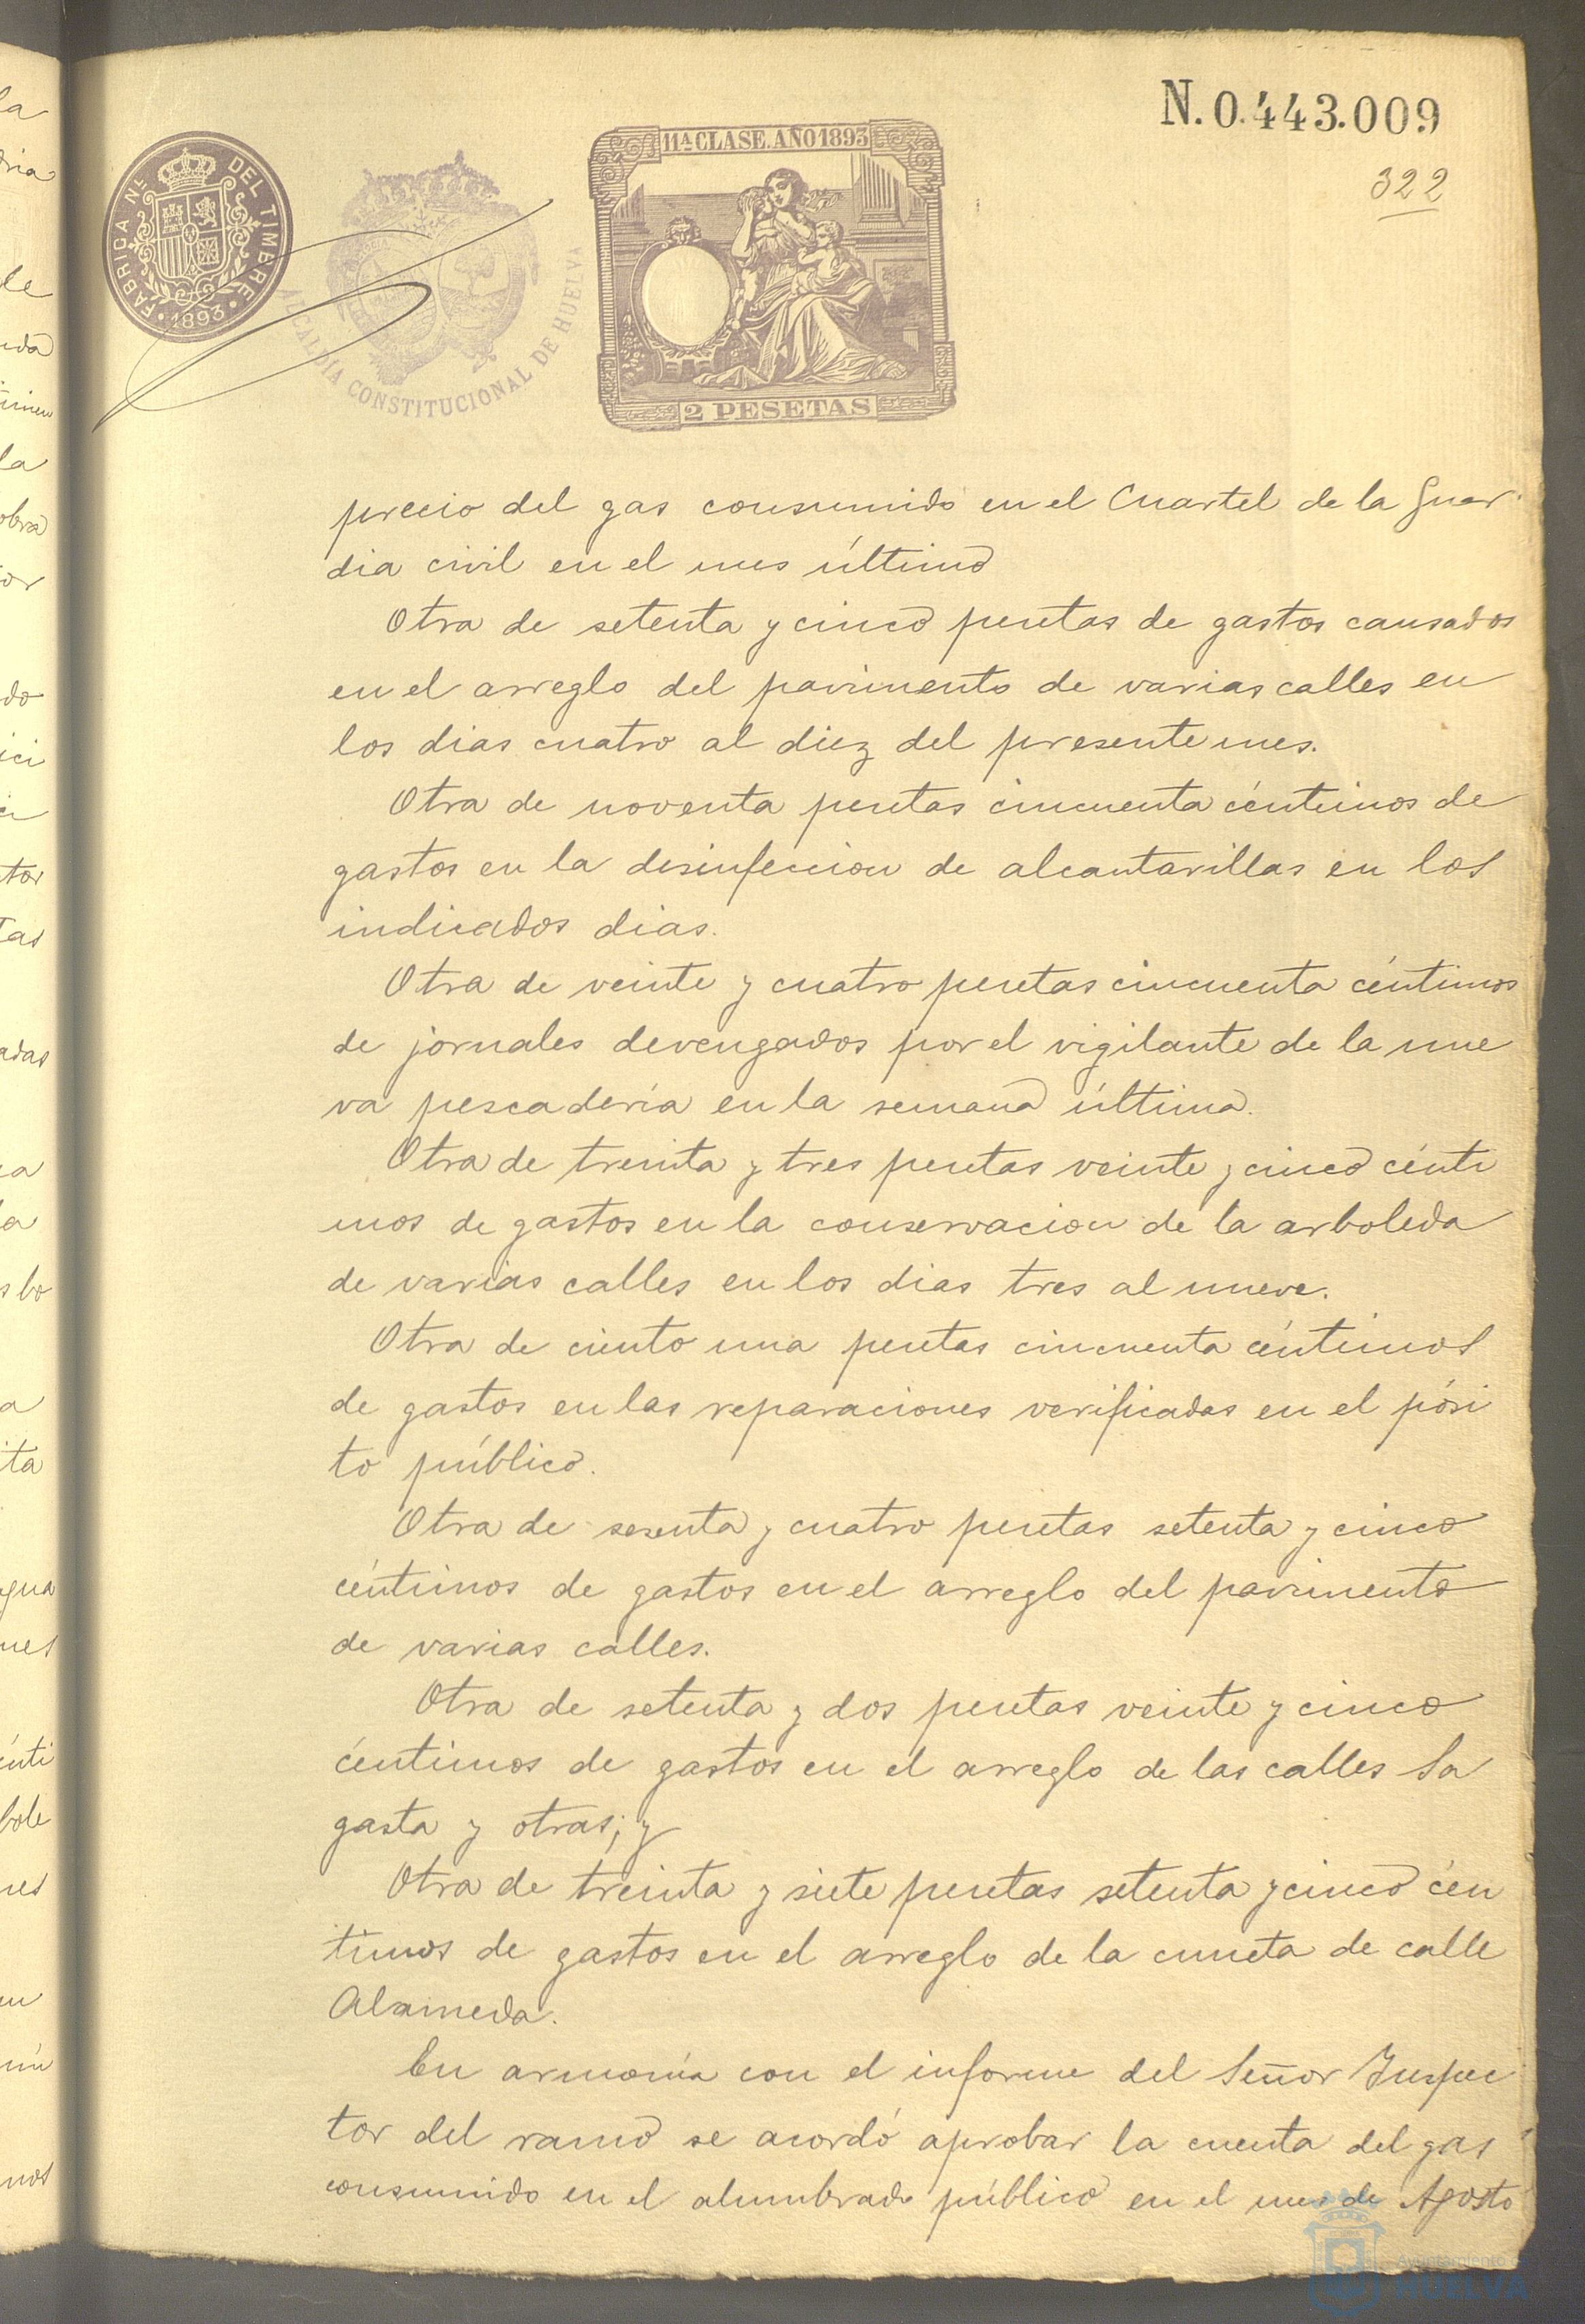 N. 0.443.009
322
FABRICA NL DEL TIMBRE
1893
ALCALDIA CONSTITUCIONAL DE HUELVA
11ª CLASE. AÑO 1893
2 PESETAS
precio del gas consumido en el Cuartel de la Guar
dia civil en el mes último
Otra de setenta y cinco pesetas de gastos causados
en el arreglo del pavimento de varias calles en
los dias cuatro al diez del presente mes.
Otra de noventa pesetas cincuenta céntimos de
gastos en la desinfeccion de alcantarillas en los
indicados dias.
Otra de veinte y cuatro pesetas cincuenta céntimos
de jornales devengados por el vigilante de la nue
va pescadería en la semana última.
Otra de treinta y tres pesetas veinte y cinco cénti
mos de gastos en la conservacion de la arboleda
de varias calles en los dias tres al nueve.
Otra de ciento una pesetas cincuenta céntimos
de gastos en las reparaciones verificadas en el pósi
to público.
Otra de sesenta y cuatro pesetas setenta y cinco
céntimos de gastos en el arreglo del pavimento
de varias calles.
Otra de setenta y dos pesetas veinte y cinco
céntimos de gastos en el arreglo de las calles Sa
gasta y otras; y
Otra de treinta y siete pesetas setenta y cinco cén
timos de gastos en el arreglo de la cuneta de calle
Alameda.
En armonía con el informe del Señor Inspec
tor del ramo se acordó aprobar la cuenta del gas
consumido en el alumbrado público en el mes de Agosto
Ayuntamiento
HUELVA